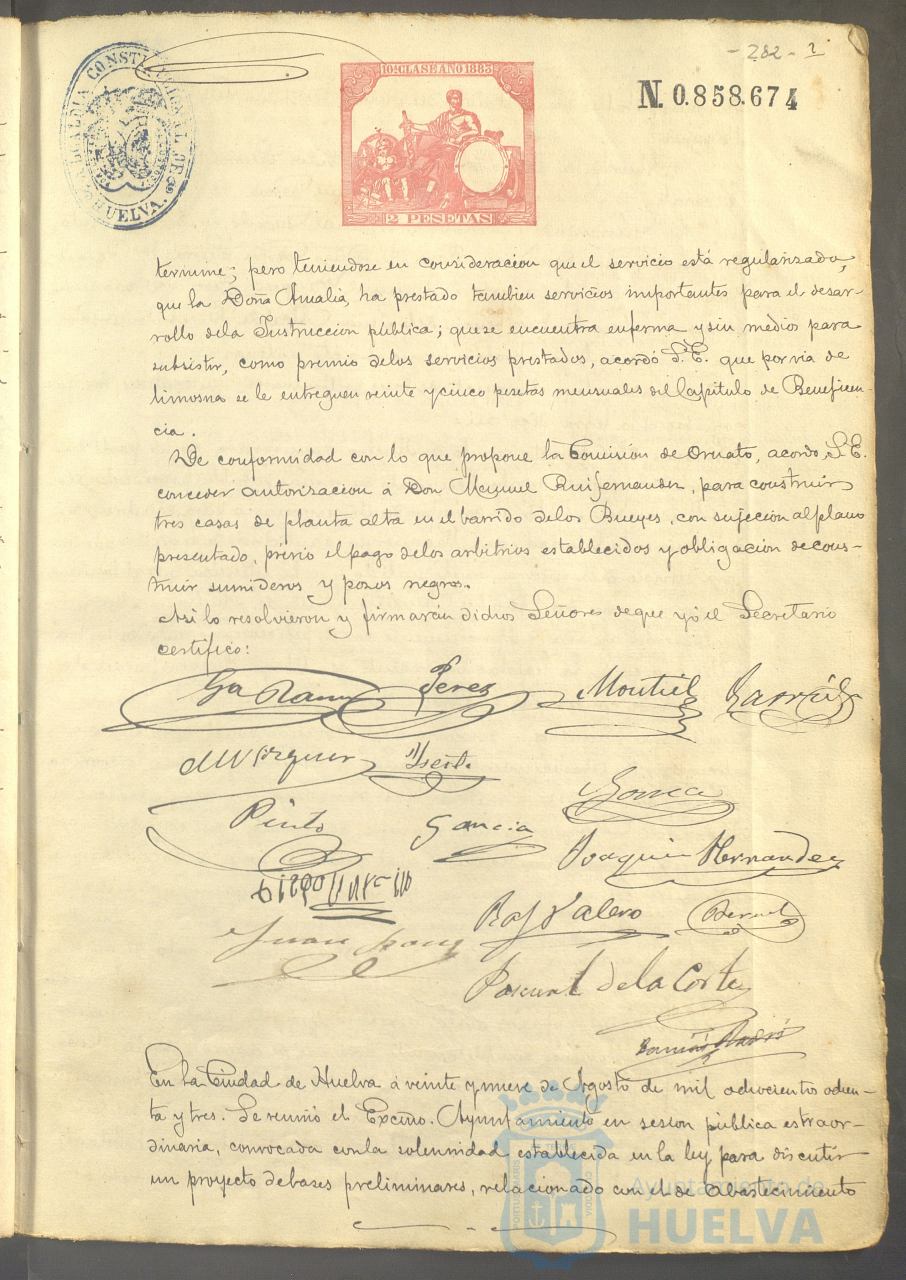 - 282 -
ALCALDIA CONSTITUCIONAL DE HUELVA.
10ª CLASE AÑO 1883
2 PESETAS
N. 0.858.674
termine; pero teniendose en consideracion que el servicio está regularizado,
que la Doña Amalia, ha prestado tambien servicios importantes para el desar-
rollo dela Instruccion pública; que se encuentra enferma y sin medios para
subsistir, como premio delos servicios prestados, acordó S.E. que por via de
limosna se le entreguen veinte y cinco pesetas mensuales del Capitulo de Beneficen-
cia.
De conformidad con lo que propone la Comision de Ornato, acordó S.E.
conceder autorizacion á Don Manuel Ruifernandez, para construir
tres casas de planta alta en el barrido delos Bueyes, con sujecion al plano
presentado, previo el pago delos arbitrios establecidos y obligacion de cons-
truir sumideros y pozos negros.
Asi lo resolvieron y firmarán dichos Señores de que yó el Secretario
certifico:
Perez Montiel
Pinto Garcia
Joaquin Hernandez
Raf Valero Bernal
Juan
Pascual de la Corte
En la Ciudad de Huelva á veinte y nueve de Agosto de mil ochocientos ochen-
ta y tres. Se reunió el Excmo. Ayuntamiento en sesion pública estraor-
dinaria, convocada con la solemnidad establecida en la ley para discutir
un proyecto de bases preliminares, relacionado con el de Abastecimiento
Ayuntamiento de
HUELVA